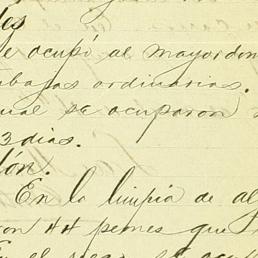 se ocupó al mayordom
abajos ordinarios.
ual se ocuparon
3 dias.
ón.
En la limpia de al
on 44 peones que